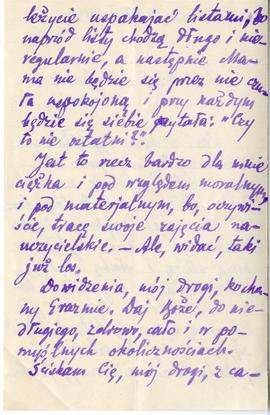 leżycie uspakajać listami, bo
naprzód listy chodzą długo i nie-
regularnie, a następnie Ma-
ma nie będzie się przez nie czu-
ła uspokojoną i przy każdym
będzie się siebie pytała: "Czy
to nie ostatni?"
Jest to rzecz bardzo dla mnie
ciężka i pod względem moralnym
i pod materjalnym, bo, oczywi-
ście, tracę swoje zajęcia na-
uczycielskie. — Ale, widać, taki
już los.
Dowidzenia, mój drogi, kocha-
ny Erazmie. Daj Boże, do nie-
długiego, zdrowo, cało i w po-
myślnych okolicznościach.
Ściskam Cię, mój drogi, z ca-